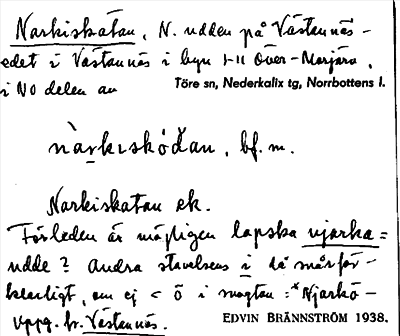 Narkiskatan, N. udden på Västannäs-
edet i Västannäs i byn 1-11 Över-Morjärv,
i NO delen av Töre sn, Nederkalix tg, Norrbottens l.
bf. m.
Narkiskatan ek.
Förleden är möjligen lapska njarka =
udde? Andra stavelsens i då svårför-
klarligt, om ej < ö i magtan = *Njarkö-
uppg. fr. Västannäs.
EDVIN BRÄNNSTRÖM 1938.